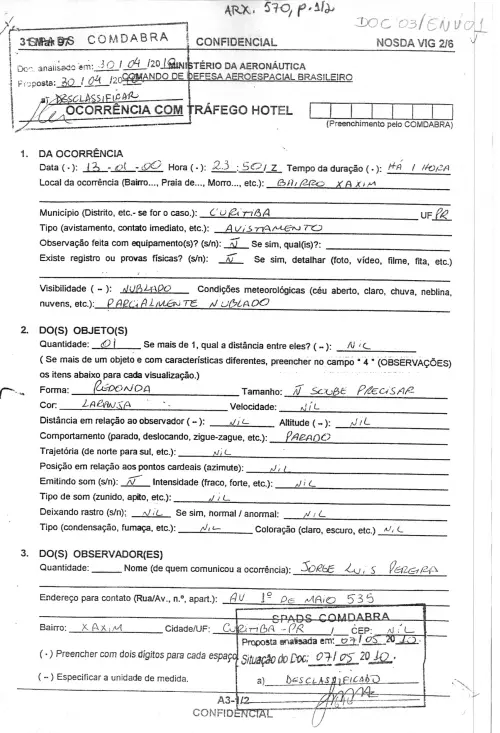 ARX. 570, p.1/2
DOC 03/ENV01
31 Mar 97 COMDABRA CONFIDENCIAL NOSDA VIG 2/6
Doc. analisado em: 30 / 04 / 20 MINISTÉRIO DA AERONÁUTICA
Proposta: 30 / 04 / 20 COMANDO DE DEFESA AEROESPACIAL BRASILEIRO
a) DESCLASSIFICAR
OCORRÊNCIA COM TRÁFEGO HOTEL
(Preenchimento pelo COMDABRA)
1. DA OCORRÊNCIA
Data ( · ): 13 - 01 - 00 Hora ( · ): 23 : 50 / Z Tempo da duração ( · ): HÁ 1 HORA
Local da ocorrência (Bairro..., Praia de..., Morro..., etc.): BAIRRO XAXIM
Município (Distrito, etc.- se for o caso.): CURITIBA UF PR
Tipo (avistamento, contato imediato, etc.): AVISTAMENTO
Observação feita com equipamento(s)? (s/n): N Se sim, qual(is)?:
Existe registro ou provas físicas? (s/n): N Se sim, detalhar (foto, vídeo, filme, fita, etc.)
Visibilidade ( ~ ): NUBLADO Condições meteorológicas (céu aberto, claro, chuva, neblina,
nuvens, etc.): PARCIALMENTE NUBLADO
2. DO(S) OBJETO(S)
Quantidade: 01 Se mais de 1, qual a distância entre eles? ( ~ ): NIL
( Se mais de um objeto e com características diferentes, preencher no campo " 4 " (OBSERVAÇÕES)
os itens abaixo para cada visualização.)
Forma: REDONDA Tamanho: Ñ SOUBE PRECISAR
Cor: LARANJA Velocidade: NIL
Distância em relação ao observador ( ~ ): NIL Altitude ( ~ ): NIL
Comportamento (parado, deslocando, zigue-zague, etc.): PARADO
Trajetória (de norte para sul, etc.): NIL
Posição em relação aos pontos cardeais (azimute): NIL
Emitindo som (s/n): N Intensidade (fraco, forte, etc.): NIL
Tipo de som (zunido, apito, etc.): NIL
Deixando rastro (s/n): NIL Se sim, normal / anormal: NIL
Tipo (condensação, fumaça, etc.): NIL Coloração (claro, escuro, etc.) NIL
3. DO(S) OBSERVADOR(ES)
Quantidade: Nome (de quem comunicou a ocorrência): JORGE LUIS PEREIRA
Endereço para contato (Rua/Av., n.º, apart.): AV 1º DE MAIO 535
SPADS COMDABRA
Bairro: XAXIM Cidade/UF: CURITIBA - PR / CEP: NIL
Proposta analisada em: 07 / 05 20 10.
( · ) Preencher com dois dígitos para cada espaço
Situação do Doc: 07 / 05 20 10.
( ~ ) Especificar a unidade de medida. a) DESCLASSIFICADO
A3-1/2
CONFIDENCIAL